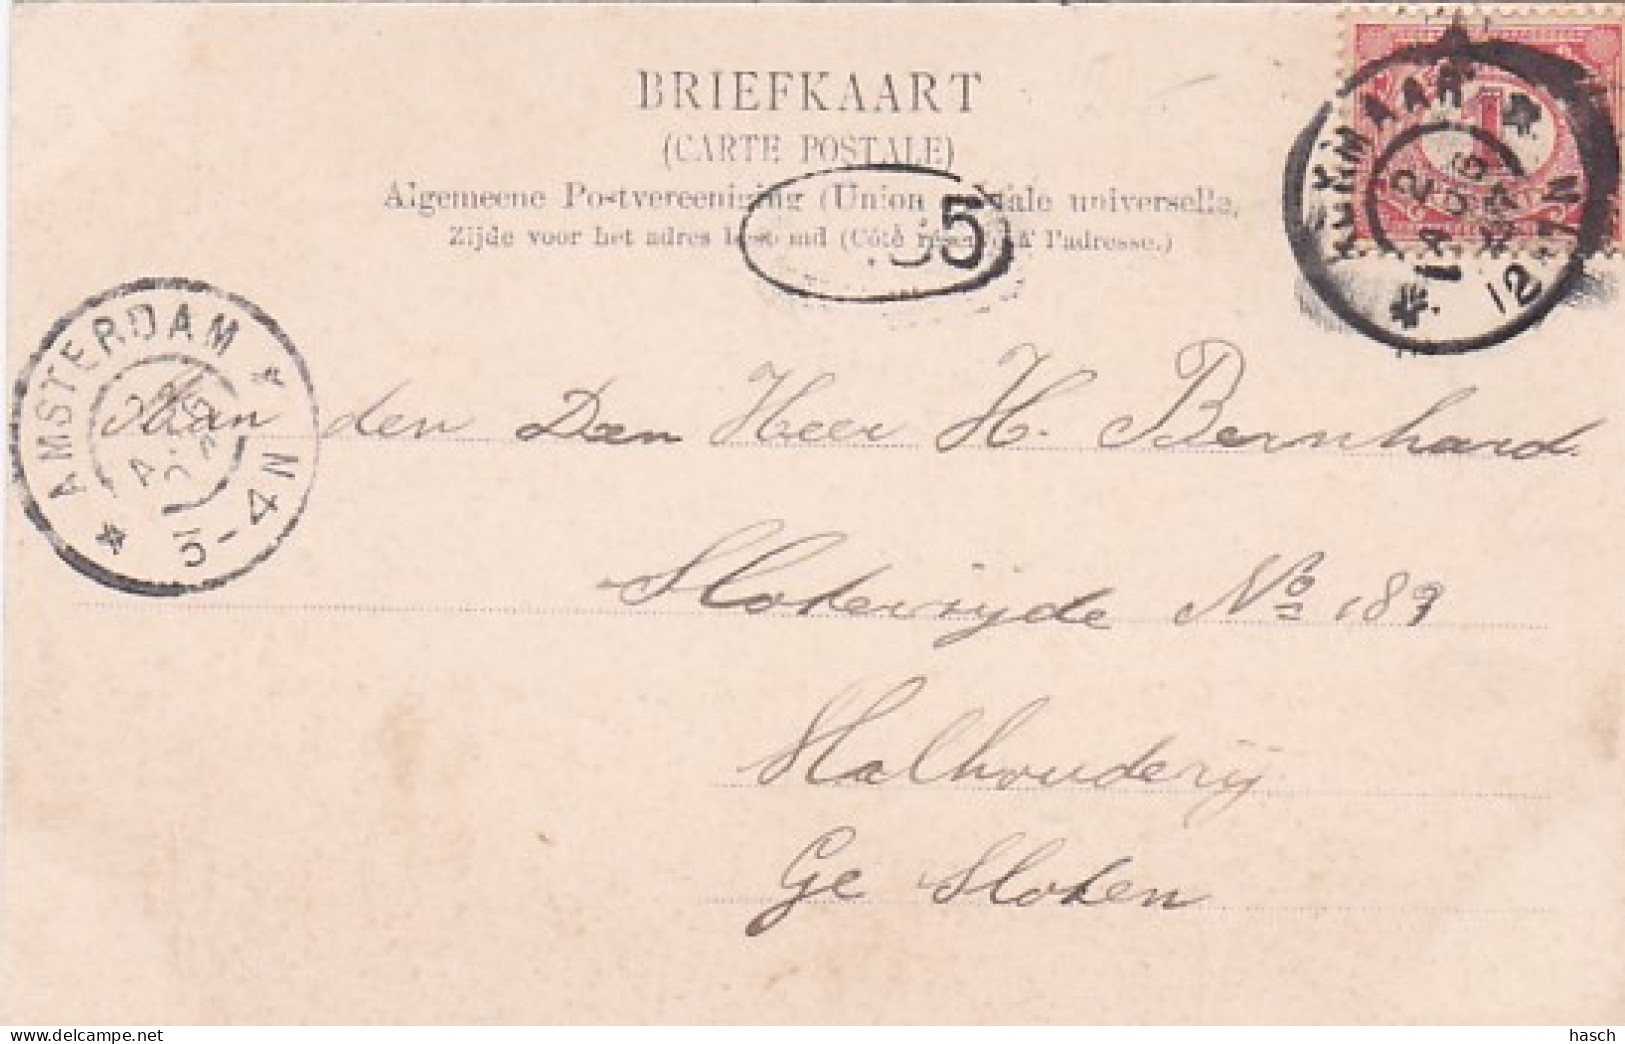 BRIEFKAART
(CARTE POSTALE)
Algemeene Postvereeniging (Union postale universelle,
Zijde voor het adres bestemd (Côté réservé à l'adresse.)
5
1
ALKMAAR
12-1N
AMSTERDAM
3-4N
Aan den Den Heer H. Bernhard.
Sloterwijde No 189
Stalhouderij
Ge Sloten
© delcampe.net
hasch